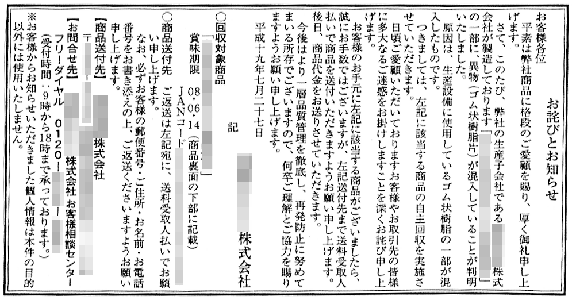 お詫びとお知らせ
お客様各位
平素は弊社商品に格段のご愛顧を賜り、厚く御礼申し上
げます。
さて、このたび、弊社の生産子会社である　株式
会社が製造しております「　」
の一部に、異物(ゴム状樹脂片)が混入していることが判明
いたしました。
原因は、生産設備に使用しているゴム状樹脂の一部が混
入したものです。
つきましては、左記に該当する商品の自主回収を実施さ
せていただきます。
日頃ご愛顧いただいておりますお客様やお取引先の皆様
に多大なるご迷惑をお掛けしますことを深くお詫び申し上
げます。
お客様のお手元に左記に該当する商品がございましたら、
誠にお手数ではございますが、左記送付先まで送料受取人
払いで商品を送付いただきますようお願い申し上げます。
後日、商品代金をお送りさせていただきます。
今後はより一層品質管理を徹底し、再発防止に努めて
まいる所存でございますので、何卒ご理解とご協力を賜り
ますようお願い申し上げます。
平成十九年十月二十七日
株式会社
記
○回収対象商品
賞味期限　08・06・14(商品裏面の下部に記載)
JANコード
○商品送付先
ご返送は左記宛に、送料受取人払いでお願
い申し上げます。
なお、必ずお客様の郵便番号・ご住所・お名前・お電話
番号をお書き添えの上、ご返送くださいますようお願い
申し上げます。
【商品送付先】
〒
株式会社
【お問合せ先】
株式会社 お客様相談センター
フリーダイヤル 0120-
(受付時間・9時から18時まで承っております。)
※お客様からお知らせいただきました個人情報は本件の目的
以外には使用いたしません。